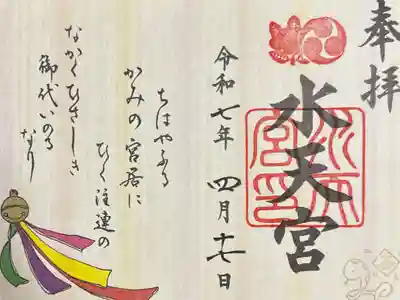 奉拝
水天宮
水天
宮印
令和七年 四月十七日
ちはやふる
かみの宮居に
ひく注連の
なかくひさしき
御代いのる
なり